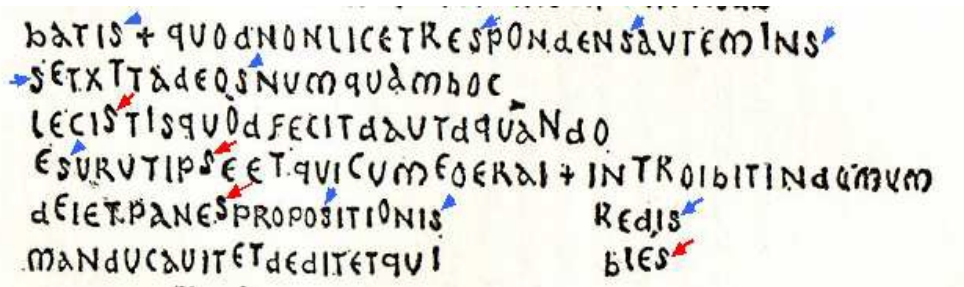 bATIS + qUOdNONLICETRESPONdENSAUTEMINS
SETXTTAdEOSNUmqUAmbOC
LECISTISqUOdFECITdAUTdqUANdO
ESURUTIPSEETqUICUMEOERAI + INTROIbITINdUmUm
dEIETPANESPROPOSITIONIS REdIS
mANdUCAUITETdEdITETqUI bLES